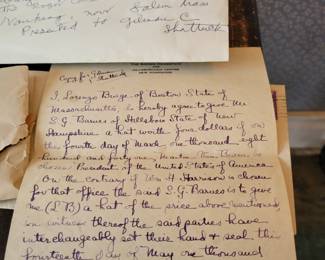 Salem Mass
now
Presented to Gilman C
Shattuck
Copy for Gilman
Shattuck
NEW HAMPSHIRE
I, Lorenzo Burge of Boston State of
Massachusetts, do hereby agree to give Mr
S.G. Barnes of Hillsboro State of New
Hampshire a hat worth four dollars if on
the fourth day of March one thousand eight
hundred and forty one Martin Van Buren is
President of the United States of America
Or the contrary if Wm H Harrison is chosen
for that office the said S.G. Barnes is to give
me (L B) a hat of the price above mentioned
in witness thereof the said parties have
interchangeably set their hand & seal this
fourteenth day of May one thousand